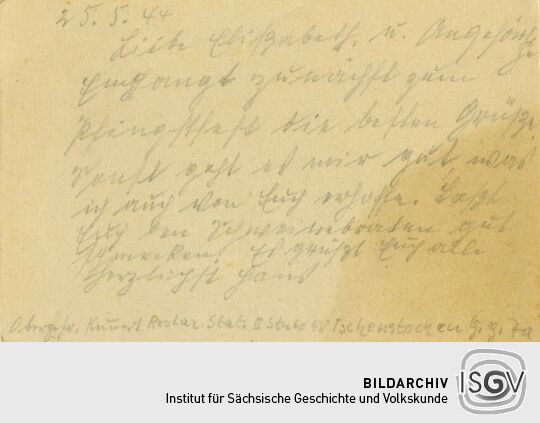 25.5.44
Liebe Elisabeth, u. Angehörige
Empfangt zunächst zum
Pfingstfest die besten Grüße.
Sonst geht es mir gut, was
ich auch von Euch erhoffe. Laßt
Euch den Schweinebraten gut
schmecken. Es grüßt Euch alle
herzlichst Hans
Obergefr. Stat. II Stube 48 Tschenstochau G.G. 7a
BILDARCHIV
Institut für Sächsische Geschichte und Volkskunde
ISGV